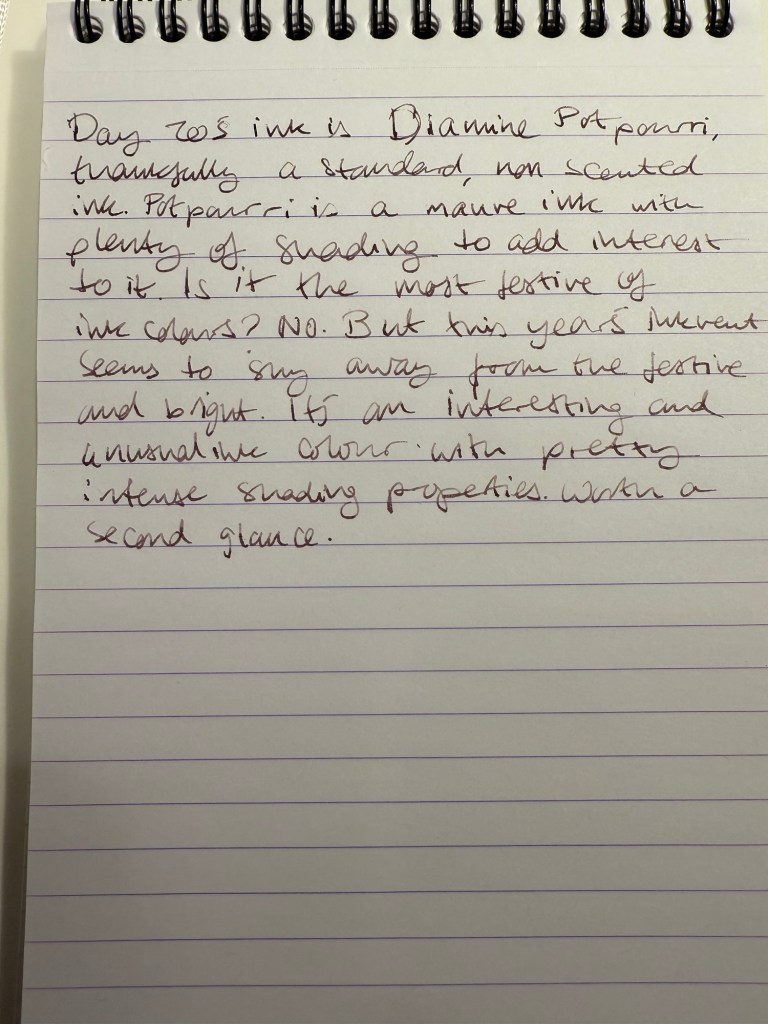 Day 20s ink is Diamine Potpourri,
thankfully a standard, non scented
ink. Potpourri is a mauve ink with
plenty of shading to add interest
to it. Is it the most festive of
ink colours? No. But this years Inkvent
seems to shy away from the festive
and bright. It's an interesting and
unusual ink colour with pretty
intense shading properties. Worth a
second glance.